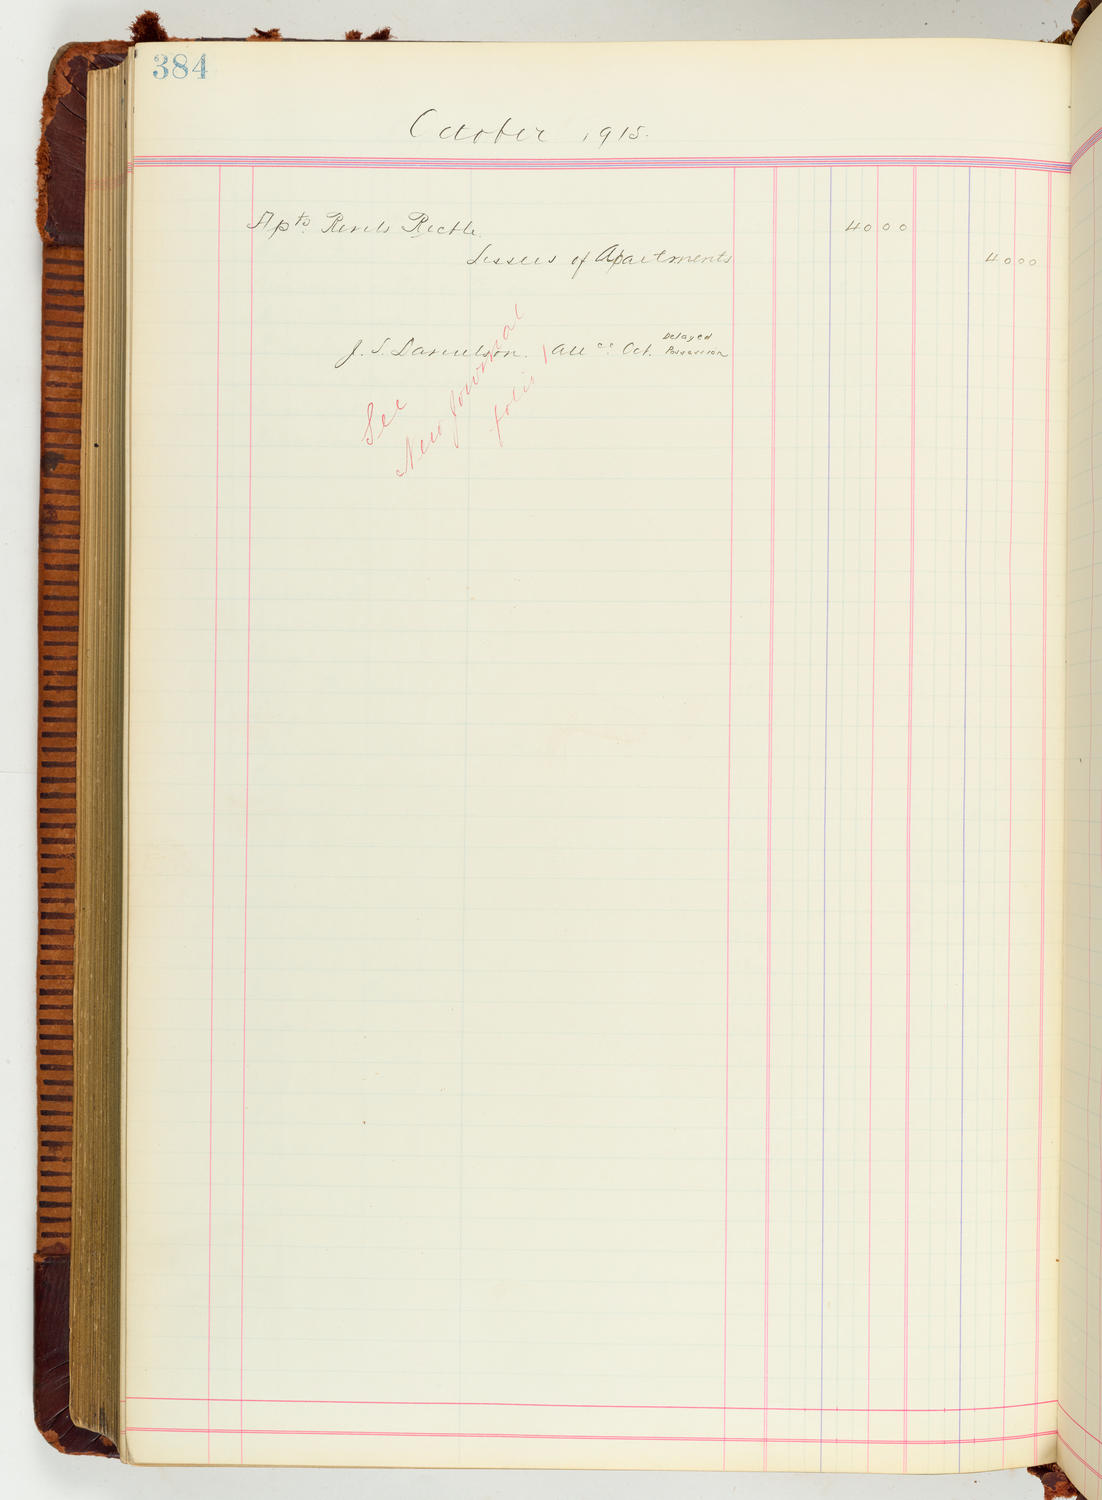 384
October 1915.
Apts. Rents Rectle. 4000
Lessees of Apartments 4000
J. S. Danielson. Allce. Oct. Delayed Possession
See
New Journal
folio 1